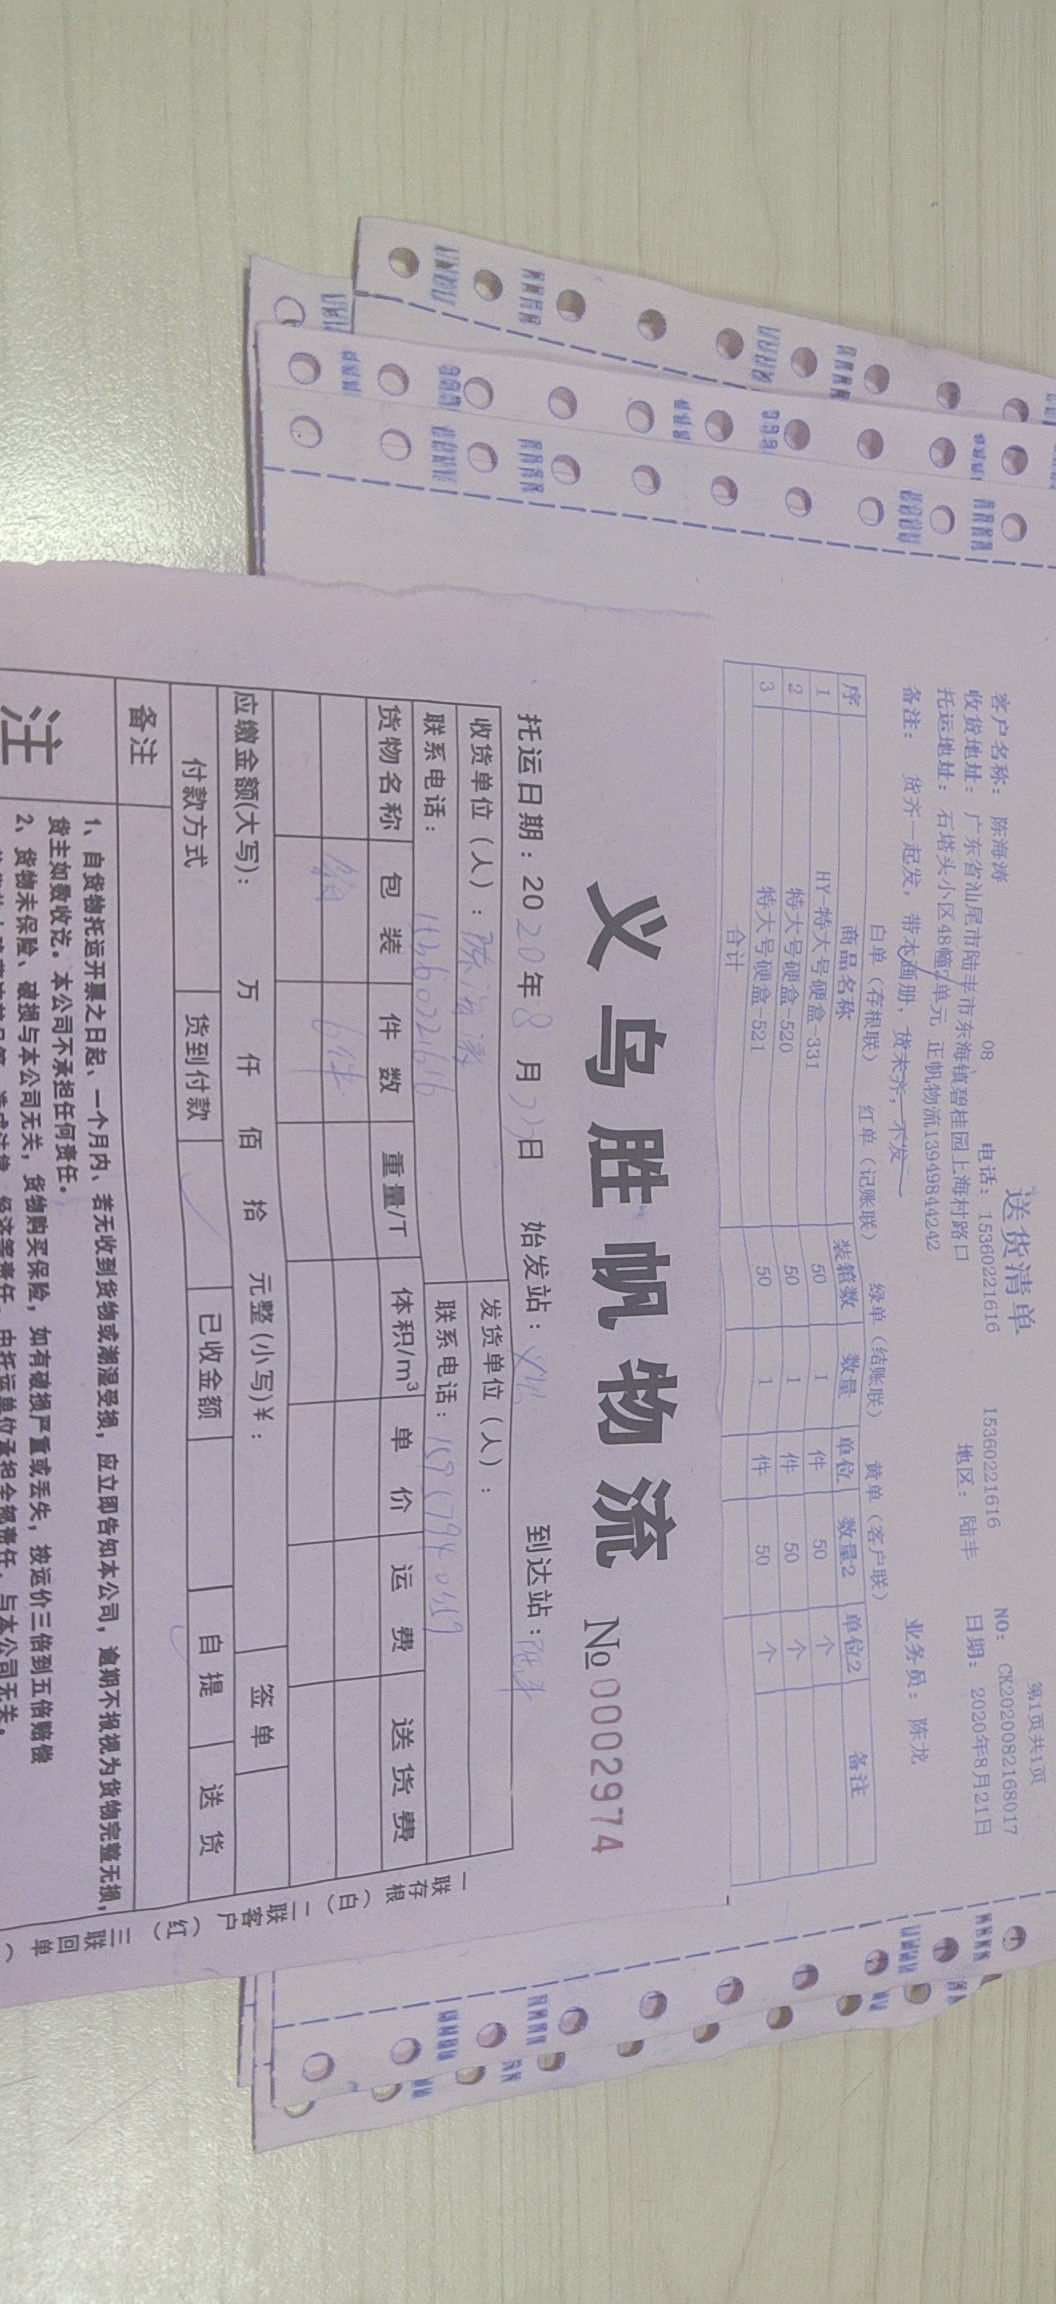 送货清单
第1页共1页
客户名称： 陈海涛 08 电话：15360221616 15360221616 NO： CK2020082168017
收货地址：广东省汕尾市陆丰市东海镇碧桂园上海村路口 地区：陆丰 日期： 2020年8月21日
托运地址：石塔头小区48幢2单元 正帆物流13949844242
备注： 货齐一起发，带本画册，货未齐，不发 业务员：陈龙
白单（存根联） 红单（记账联） 绿单（结账联） 黄单（客户联）
序 商品名称 装箱数 数量 单位 数量2 单位2 备注
1 HY-特大号硬盒-331 50 1 件 50 个
2 特大号硬盒-520 50 1 件 50 个
3 特大号硬盒-521 50 1 件 50 个
合计
义乌胜帆物流 №0002974
托运日期：2020年8月 日 始发站： 到达站：
收货单位（人）：陈海涛 发货单位（人）：
联系电话： 联系电话：
货物名称 包装 件数 重量/T 体积/m³ 单价 运费 送货费
6件
应缴金额(大写)： 万 仟 佰 拾 元整(小写)¥： 签单
付款方式 货到付款 已收金额 自提 送货
备注
注
1、自货物托运开票之日起、一个月内、若无收到货物或潮湿受损，应立即告知本公司，逾期不报视为货物完整无损，
货主如数收讫。本公司不承担任何责任。
2、货物未保险、破损与本公司无关，货物购买保险，如有破损严重或丢失，按运价三倍到五倍赔偿
一联存根（白）二联客户（红）三联回单（